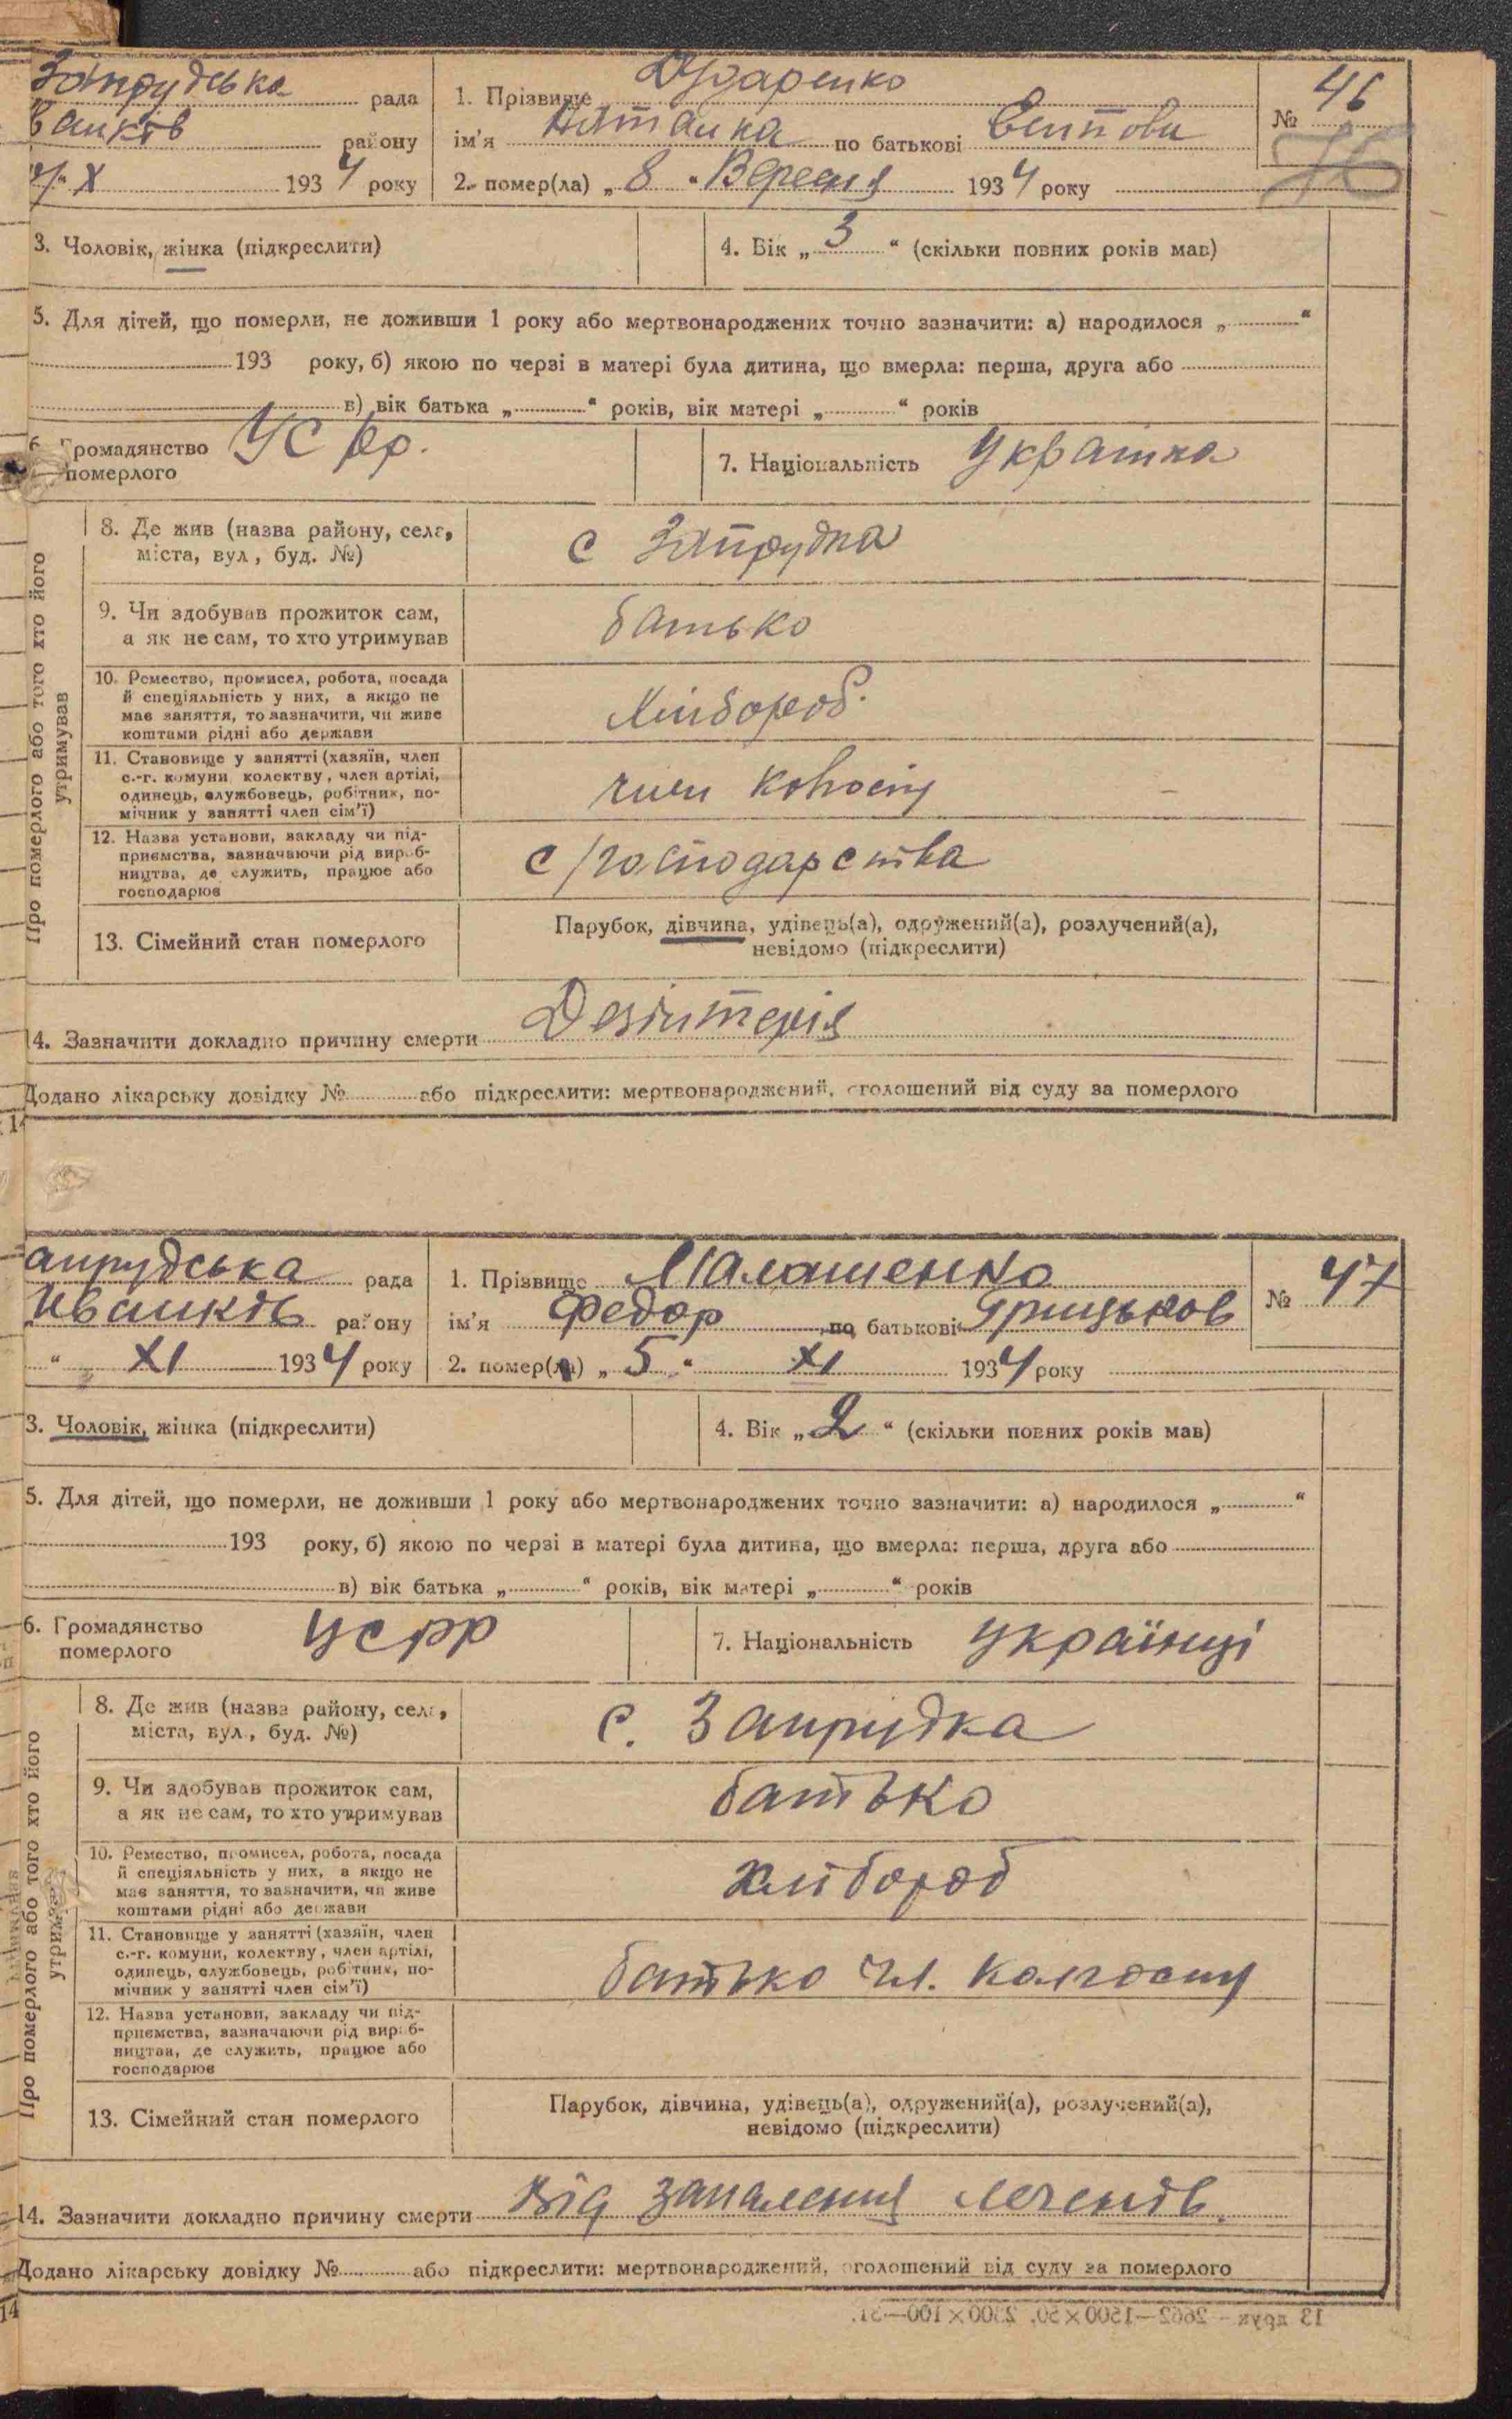 Запрудська рада
1. Прізвище
№ 46
76
районy
ім'я по батькові
X 1934 року
2. помер(ла) „ 8 “ Вересня 1934 року
3. Чоловік, жінка (підкреслити)
4. Вік „ 3 “ (скільки повних років мав)
5. Для дітей, що померли, не доживши 1 року або мертвонароджених точно зазначити: а) народилося „ “
193 року, б) якою по черзі в матері була дитина, що вмерла: перша, друга або
в) вік батька „ “ років, вік матері „ “ років
6. Громадянство померлого УСРР.
7. Національність Українка
Про померлого або того хто його утримував
8. Де жив (назва району, села, міста, вул, буд. №)
с Запрудка
9. Чи здобував прожиток сам, а як не сам, то хто утримував
батько
10. Ремество, промисел, робота, посада й спеціяльність у них, а якщо не має заняття, то зазначити, чи живе коштами рідні або держави
Хлібороб.
11. Становище у занятті (хазяїн, член с.-г. комуни, колектву, член артілі, одинець, службовець, робітник, помічник у занятті член сім'ї)
член колгоспу
12. Назва установи, закладу чи підприємства, зазначаючи рід виробництва, де служить, працює або господарює
с/господарства
13. Сімейний стан померлого
Парубок, дівчина, удівець(а), одружений(а), розлучений(а),
невідомо (підкреслити)
14. Зазначити докладно причину смерти Дезінтерія
Додано лікарську довідку № або підкреслити: мертвонароджений, оголошений від суду за померлого
14
апрудська рада
1. Прізвище Малашенко
№ 47
Іванків району
ім'я Федор по батькові Грицьков
“ XI 1934 року
2. помер(ла) „ 5 “ XI 1934 року
3. Чоловік, жінка (підкреслити)
4. Вік „ 2 “ (скільки повних років мав)
5. Для дітей, що померли, не доживши 1 року або мертвонароджених точно зазначити: а) народилося „ “
193 року, б) якою по черзі в матері була дитина, що вмерла: перша, друга або
в) вік батька „ “ років, вік матері „ “ років
6. Громадянство померлого УСРР
7. Національність українці
Про померлого або того хто його утримував
8. Де жив (назва району, села, міста, вул, буд. №)
с. Запрудка
9. Чи здобував прожиток сам, а як не сам, то хто утримував
батько
10. Ремество, промисел, робота, посада й спеціяльність у них, а якщо не має заняття, то зазначити, чи живе коштами рідні або держави
хлібороб
11. Становище у занятті (хазяїн, член с.-г. комуни, колектву, член артілі, одинець, службовець, робітник, помічник у занятті член сім'ї)
батько чл. колгоспу
12. Назва установи, закладу чи підприємства, зазначаючи рід виробництва, де служить, працює або господарює
13. Сімейний стан померлого
Парубок, дівчина, удівець(а), одружений(а), розлучений(а),
невідомо (підкреслити)
14. Зазначити докладно причину смерти Від запалення легенів.
Додано лікарську довідку № або підкреслити: мертвонароджений, оголошений від суду за померлого
14
13 друк – 2662–1500×50. 2300×100–31.